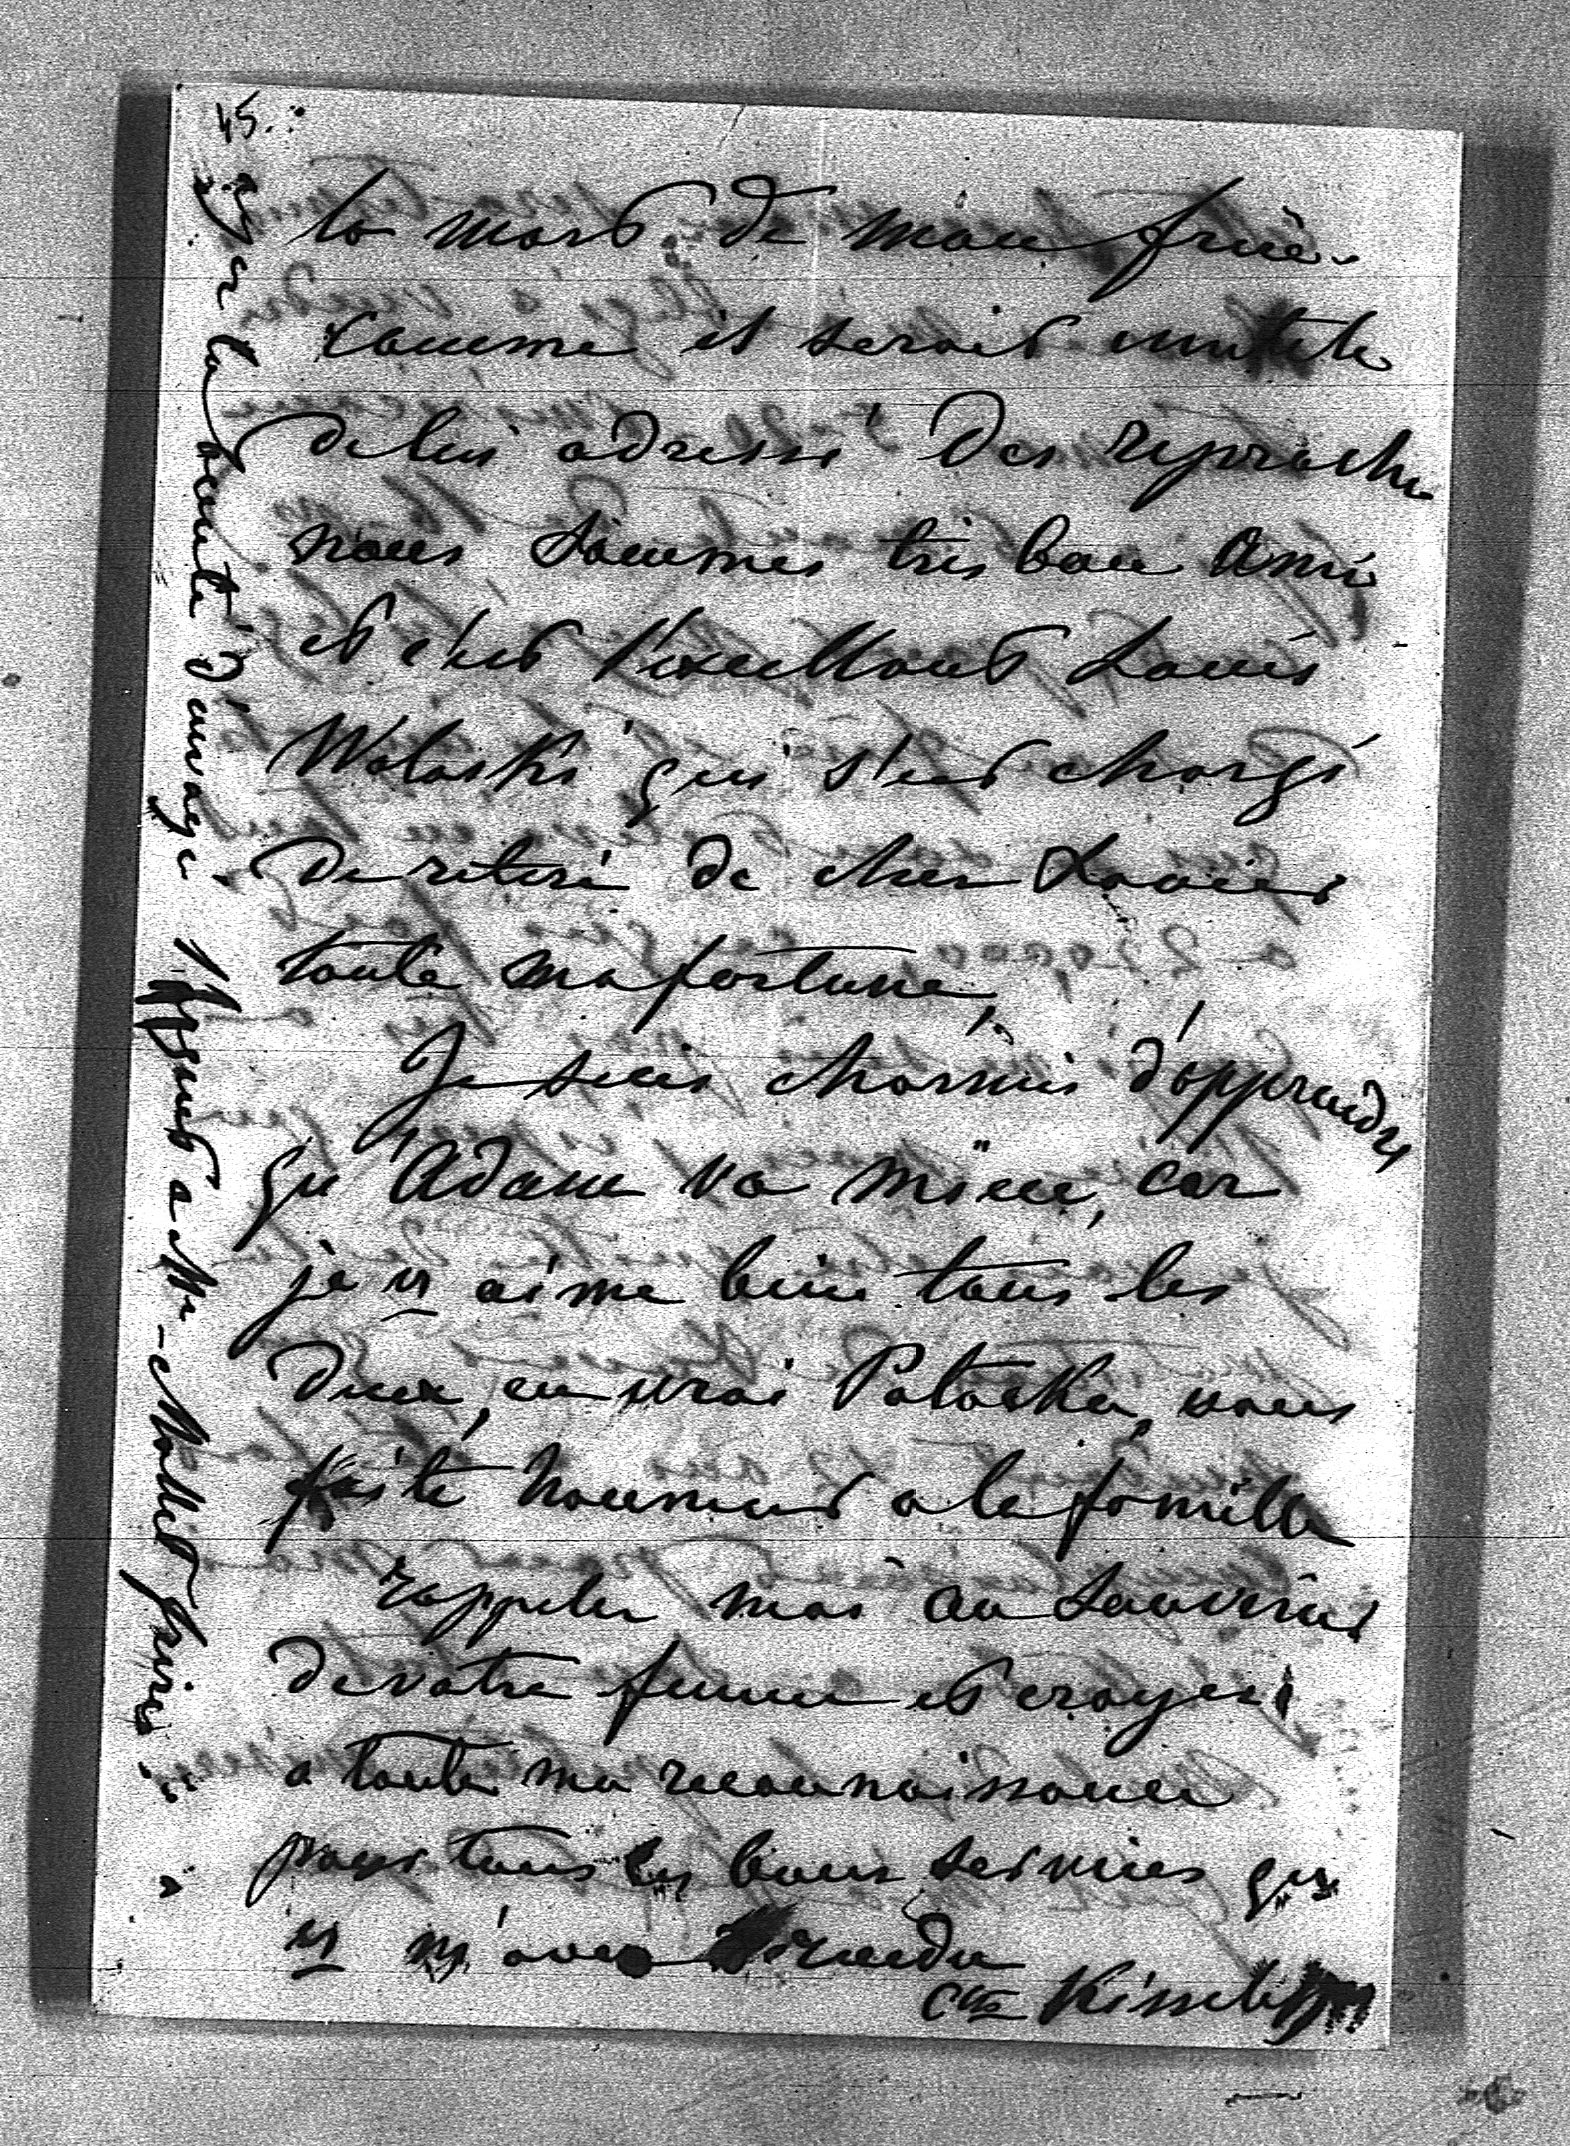 45.
la mort de mon frère
comme il serait inutile
de lui adressé des reproche
nous sommes très bon ami
et c'est l'excellent Louis
Woloski qui s'est chargé
de retiré de chez
toute ma fortune,
Je suis charmé d'apprendre
qu'Adam va mieu, car
je vs aime bien tous les
deux, en vrai Potocka, vous
faite honneur a la famille
rappeler moi au souvenir
de votre femme et croyez
a toute ma reconnaissance
pour tous les bons services que
vs m'avez rendu
Ctsse Kisseleff
la bonté d'envoyé